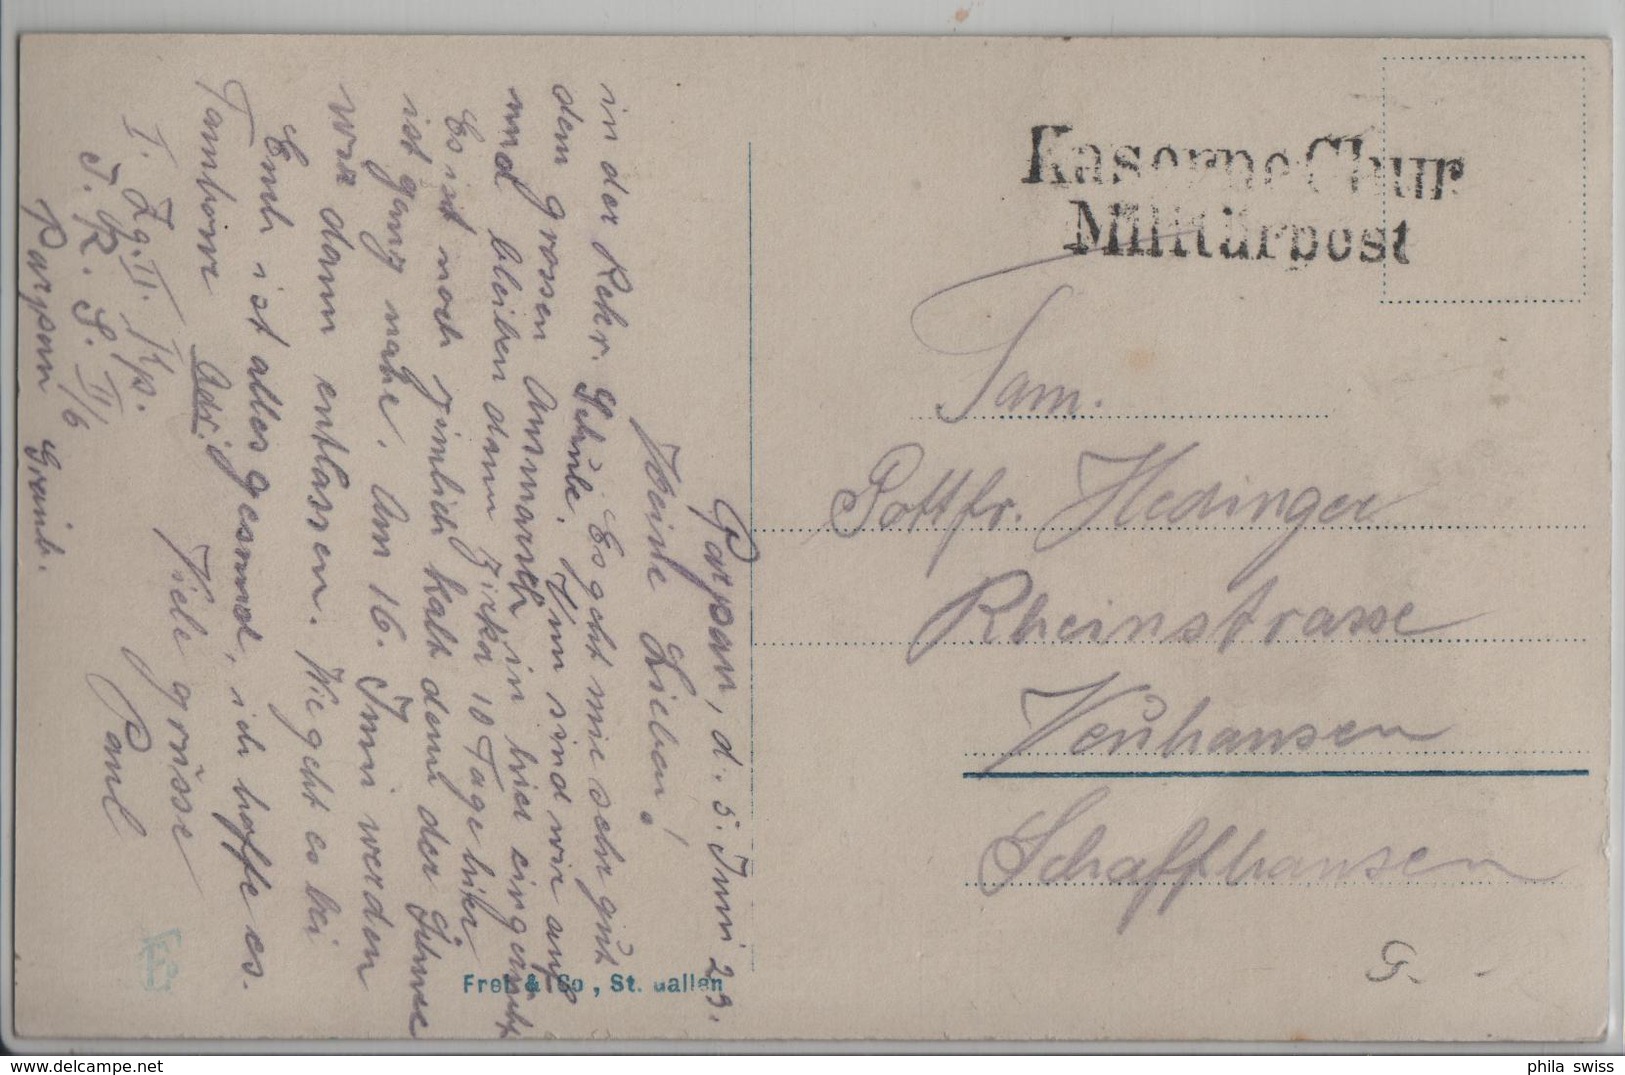 Kaserne Chur
Militärpost
Fam.
Gottfr. Hedinger
Rheinstrasse
Neuhausen
Schaffhausen
G.
Parpan, d. 5. Juni 23.
Meine Lieben!
in der Rekr. Schule. Es geht mir sehr gut
dem grossen Ausmarsch. Nun sind wir auf
und bleiben dann zirka 10 Tage hier
Es ist noch zimlich kalt denn der Schnee
ist ganz nahe. Am 16. Juni werden
wir dann entlassen. Wie geht es bei
Euch ist alles gesund, ich hoffe es.
Viele grüsse
Paul
Tambour Adr:
I. Zg. II. Kp.
I. R. S. II/6
Parpan Graub.
Frei & Co , St. Gallen
phila swiss